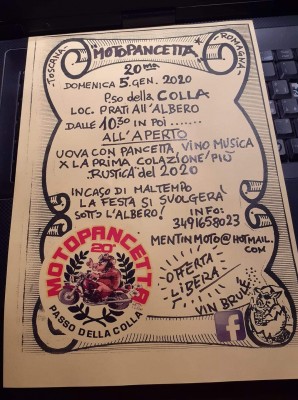 TOSCANA
ROMAGNA
MOTOPANCETTA
20ma
DOMENICA 5.GEN. 2020
P.so della COLLA
LOC. PRATI ALL'ALBERO
DALLE 10.30 IN POI .......
ALL'APERTO
UOVA CON PANCETTA, VINO MUSICA
X LA PRIMA COLAZIONE PIÙ
"RUSTICA" DEL 2020
IN CASO DI MALTEMPO
LA FESTA SI SVOLGERÀ
SOTTO L'ALBERO!
INFO:
3491658023
MENTINMOTO@HOTMAIL.
COM
OFFERTA
LIBERA
VIN BRULÉ
MOTOPANCETTA
20
PASSO DELLA COLLA
f